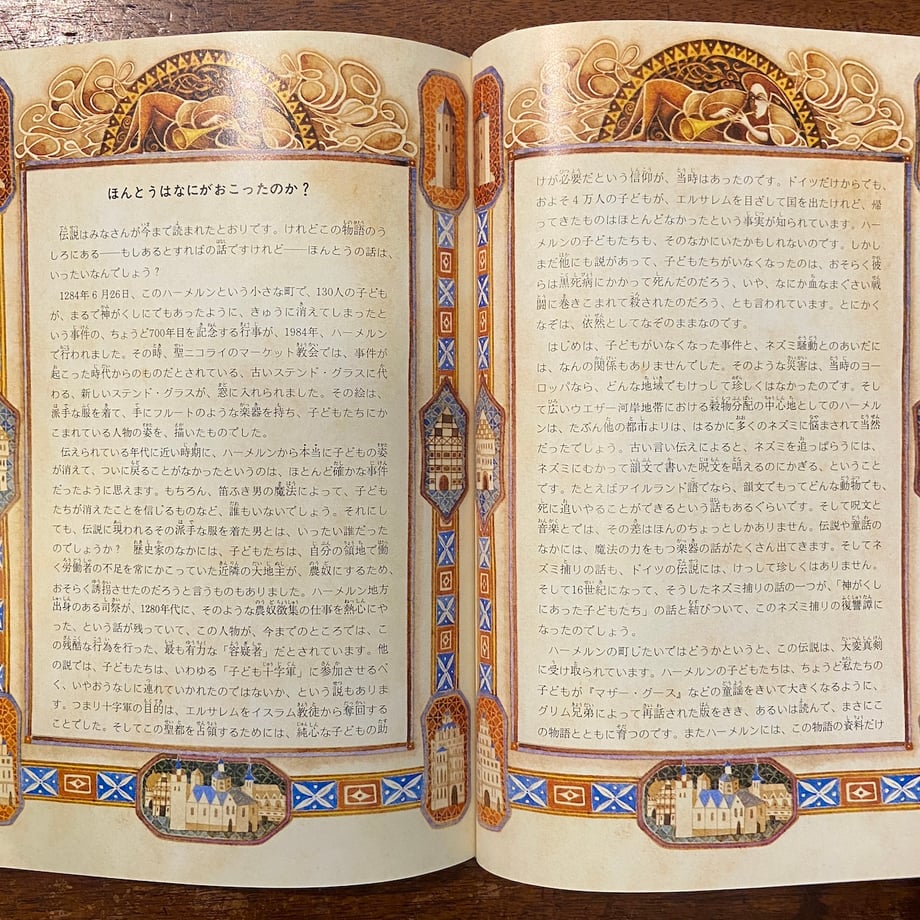 ほんとうはなにがおこったのか?
伝説はみなさんが今まで読まれたとおりです。けれどこの物語のう
しろにある——もしあるとすればの話ですけれど——ほんとうの話は、
いったいなんでしょう?
1284年6月26日、このハーメルンという小さな町で、130人の子ども
が、まるで神がくしにでもあったように、きゅうに消えてしまったと
いう事件の、ちょうど700年目を記念する行事が、1984年、ハーメルン
で行われました。その時、聖ニコライのマーケット教会では、事件が
起こった時代からのものだとされている、古いステンド・グラスに代
わる、新しいステンド・グラスが、窓に入れられました。その絵は、
派手な服を着て、手にフルートのような楽器を持ち、子どもたちにか
こまれている人物の姿を、描いたものでした。
伝えられている年代に近い時期に、ハーメルンから本当に子どもの姿
が消えて、ついに戻ることがなかったというのは、ほとんど確かな事件
だったように思えます。もちろん、笛ふき男の魔法によって、子ども
たちが消えたことを信じるものなど、誰もいないでしょう。それにし
ても、伝説に現われるその派手な服を着た男とは、いったい誰だった
のでしょうか? 歴史家のなかには、子どもたちは、自分の領地で働
く労働者の不足を常にかこっていた近隣の大地主が、農奴にするため、
おそらく誘拐させたのだろうと言うものもありました。ハーメルン地方
出身のある司祭が、1280年代に、そのような農奴徴集の仕事を熱心にや
った、という話が残っていて、この人物が、今までのところでは、こ
の残酷な行為を行った、最も有力な「容疑者」だとされています。他
の説では、子どもたちは、いわゆる「子ども十字軍」に参加させるべ
く、いやおうなしに連れていかれたのではないか、という説もありま
す。つまり十字軍の目的は、エルサレムをイスラム教徒から奪回する
ことでした。そしてこの聖都を占領するためには、純心な子どもの助
けが必要だという信仰が、当時はあったのです。ドイツだけからでも、
およそ4万人の子どもが、エルサレムを目ざして国を出たけれど、帰
ってきたものはほとんどなかったという事実が知られています。ハー
メルンの子どもたちも、そのなかにいたかもしれないのです。しかし
まだ他にも説があって、子どもたちがいなくなったのは、おそらく彼
らは黒死病にかかって死んだのだろう、いや、なにか血なまぐさい戦
闘に巻きこまれて殺されたのだろう、とも言われています。とにかく
なぞは、依然としてなぞのままなのです。
はじめは、子どもがいなくなった事件と、ネズミ騒動とのあいだに
は、なんの関係もありませんでした。そのような災害は、当時のヨー
ロッパなら、どんな地域でもけっして珍しくはなかったのです。そし
て広いウエザー河岸地帯における穀物分配の中心地としてのハーメル
ンは、たぶん他の都市よりは、はるかに多くのネズミに悩まされて当然
だったでしょう。古い言い伝えによると、ネズミを追っぱらうには、
ネズミにむかって韻文で書いた呪文を唱えるのにかぎる、ということ
です。たとえばアイルランド語でなら、韻文でもってどんな動物でも、
死に追いやることができるという話もあるぐらいです。そして呪文と
音楽とでは、その差はほんのちょっとしかありません。伝説や童話の
なかには、魔法の力をもつ楽器の話がたくさん出てきます。そしてネ
ズミ捕りの話も、ドイツの伝説には、けっして珍しくはありません。
そして16世紀になって、そうしたネズミ捕りの話の一つが、「神がくし
にあった子どもたち」の話と結びついて、このネズミ捕りの復讐譚に
なったのでしょう。
ハーメルンの町じたいではどうかというと、この伝説は、大変真剣
に受け取られています。ハーメルンの子どもたちは、ちょうど私たちの
子どもが『マザー・グース』などの童謡をきいて大きくなるように、
グリム兄弟によって再話された版をきき、あるいは読んで、まさにこ
の物語とともに育つのです。またハーメルンには、この物語の資料だけ